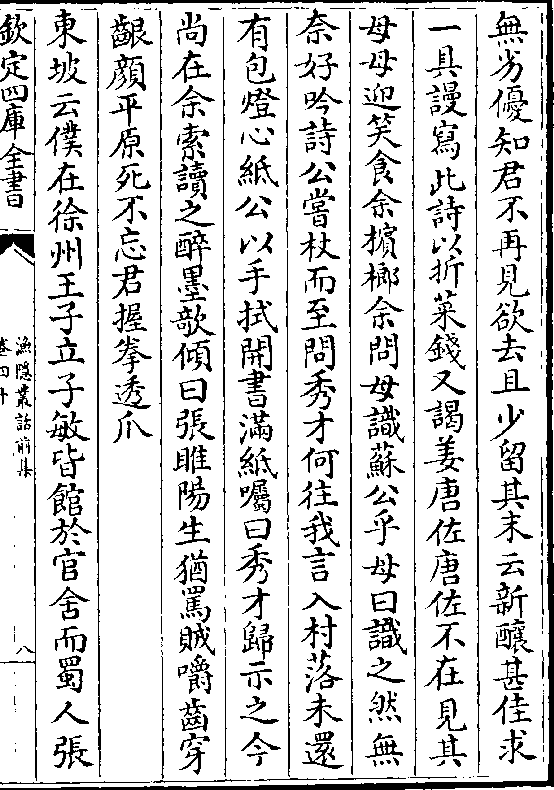 無劣優知君不再見欲去且少留其末云新釀甚佳求
一具謾寫此詩以折菜錢又謁姜唐佐唐佐不在見其
母母迎笑食余檳榔余問母識蘇公乎母曰識之然無
奈好吟詩公嘗杖而至問秀才何往我言入村落未還
有包燈心紙公以手拭開書滿紙囑曰秀才歸示之今
尚在余索讀之醉墨欹傾曰張睢陽生猶罵賊嚼齒穿
齦顔平原死不忘君握拳透爪
東坡云僕在徐州王子立子敏皆館於官舍而蜀人張
欽定四庫全書
漁隱叢話前集
卷四十
八